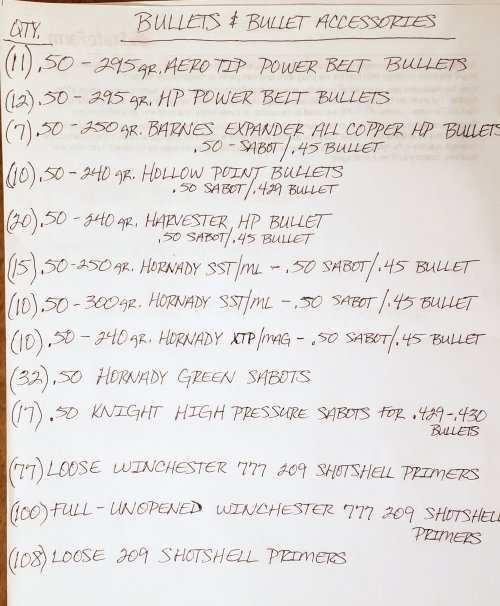 QTY. BULLETS & BULLET ACCESSORIES
(11) .50 - 295 gr. AERO TIP POWER BELT BULLETS
(12) .50 - 295 gr. HP POWER BELT BULLETS
(7) .50 - 250 gr. BARNES EXPANDER ALL COPPER HP BULLETS
.50 - SABOT/.45 BULLET
(10) .50 - 240 gr. HOLLOW POINT BULLETS
.50 SABOT/.429 BULLET
(20) .50 - 240 gr. HARVESTER HP BULLET
.50 SABOT/.45 BULLET
(15) .50 - 250 gr. HORNADY SST/ML - .50 SABOT/.45 BULLET
(10) .50 - 300 gr. HORNADY SST/ML - .50 SABOT/.45 BULLET
(10) .50 - 240 gr. HORNADY XTP/MAG - .50 SABOT/.45 BULLET
(32) .50 HORNADY GREEN SABOTS
(17) .50 KNIGHT HIGH PRESSURE SABOTS FOR .429-.430
BULLETS
(77) LOOSE WINCHESTER 777 209 SHOTSHELL PRIMERS
(100) FULL - UNOPENED WINCHESTER 777 209 SHOTSHELL
PRIMERS
(108) LOOSE 209 SHOTSHELL PRIMERS